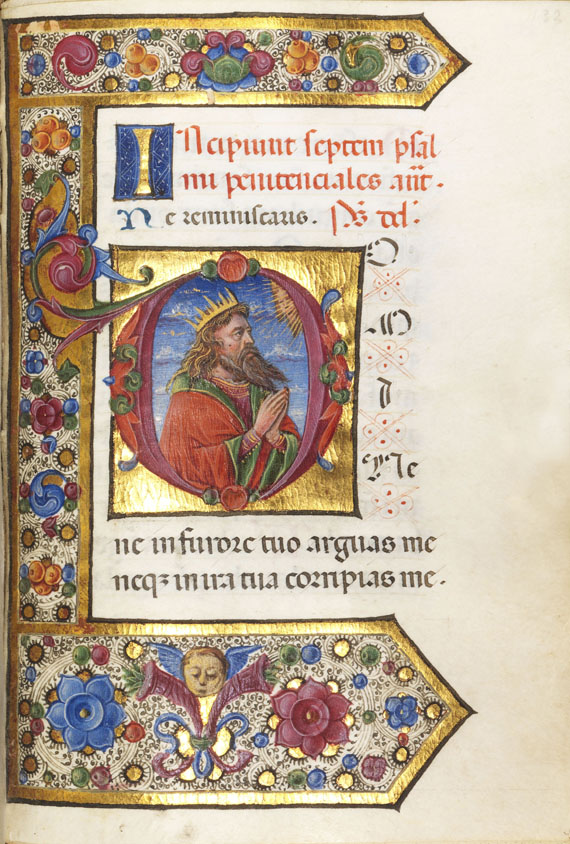 INcipiunt septem psal
mi penitenciales añt.
Ne reminiscaris. Ps
DO
M
I
Ne
ne in furore tuo arguas me
neqꝫ in ira tua corripias me.